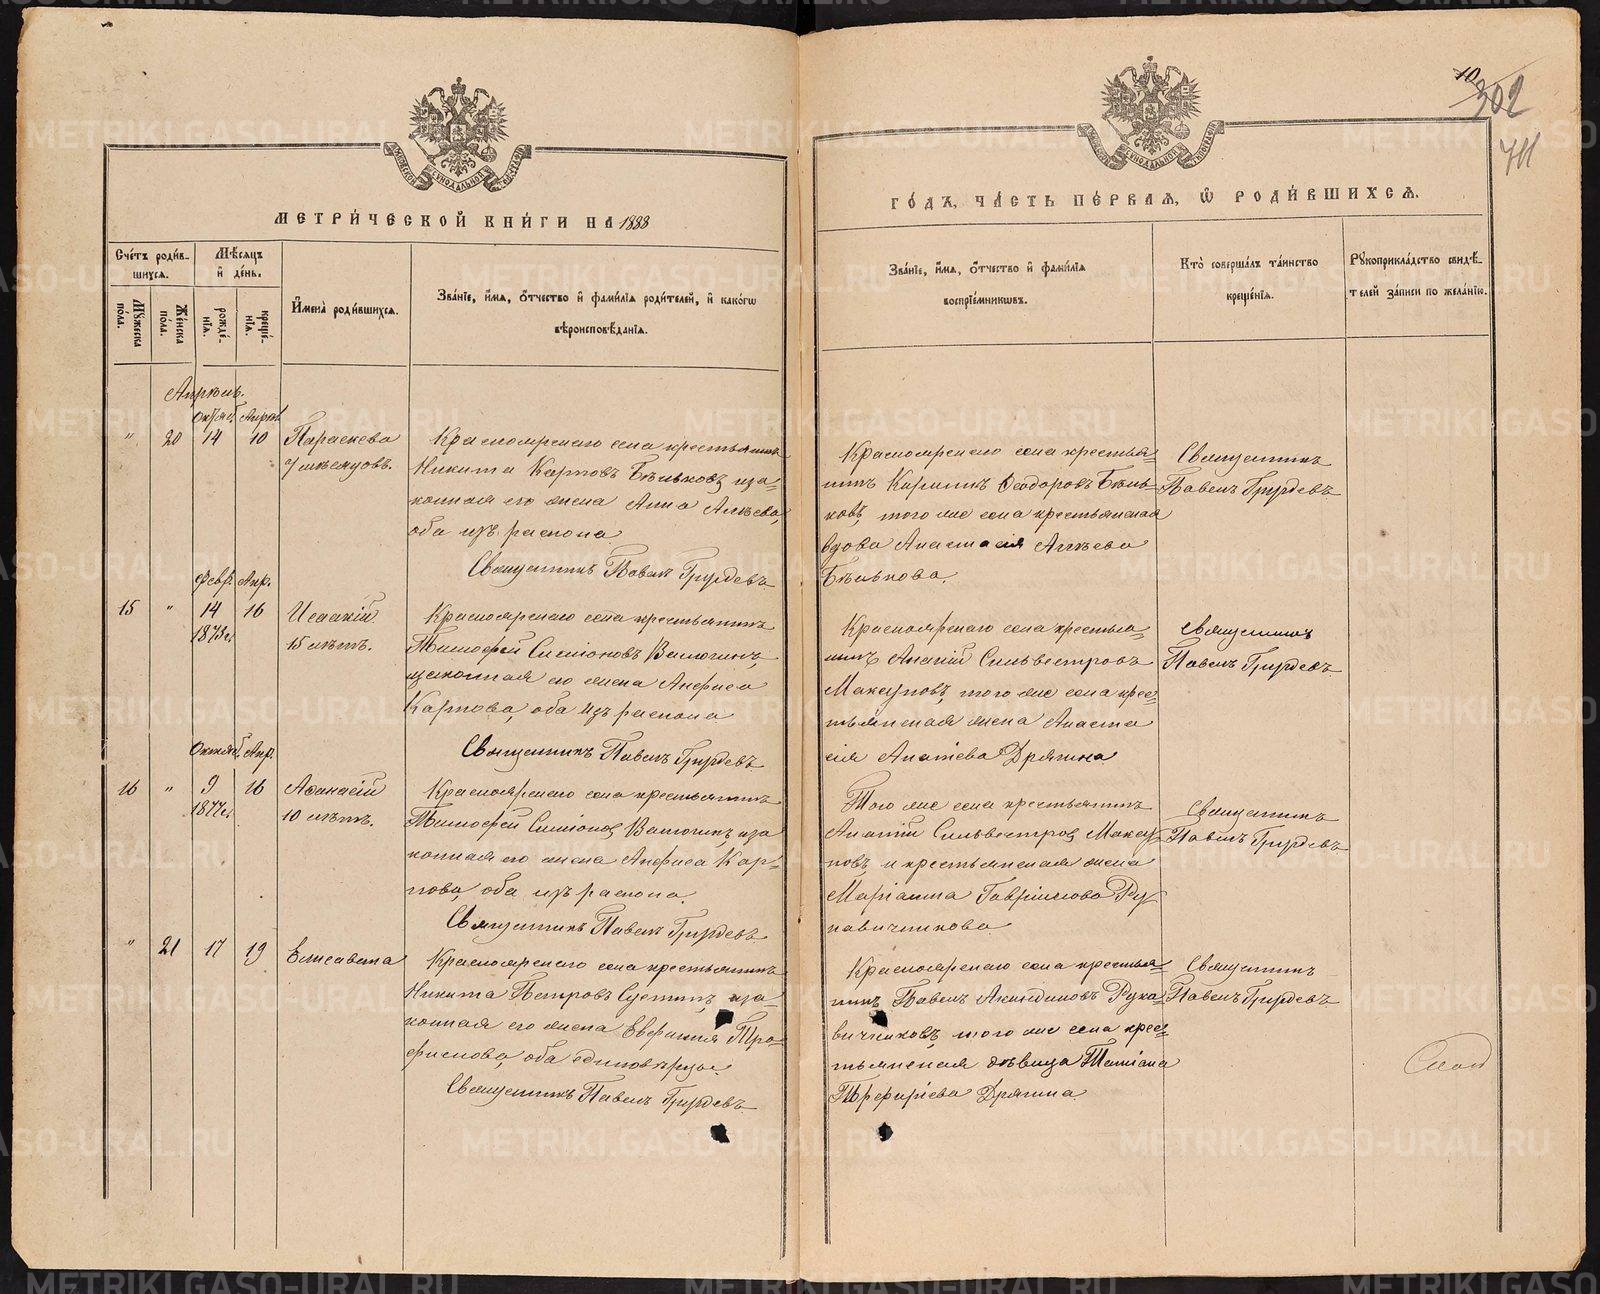 МЕТРИ́ЧЕСКОЙ КНИ́ГИ НА 1888
Сче́тъ роди́в-
шихся.
Мѣ́сяцъ
и҆ де́нь.
Мꙋжеска
по́ла.
Же́нска
по́ла.
рожде́-
нїѧ.
креще́-
нїѧ.
И҆мена̀ роди́вшихся.
Зва́нїе, и҆́мѧ, ѻ҆́тчество и҆ фами́лїѧ роди́телей, и҆ како́гѡ
вѣроисповѣ́данїѧ.
Апрѣль.
Октяб. Апрѣл.
" 20 14 10 Параскева
7 мѣсяцовъ.
Красноярскаго села крестьянинъ
Никита Карповъ Бѣльковъ, иза-
конная его жена Анна Алѣева,
оба изъ раскола.
Священникъ Павелъ Груздевъ
Февр. Апр.
15 " 14 16 Исаакій
1873 г. 15 лѣтъ.
Красноярскаго села крестьянинъ
Тимофей Симіоновъ Валюгинъ,
изаконная его жена Анфиса
Карпова, оба изъ раскола
Священникъ Павелъ Груздевъ
Октяб. Апр.
16 " 9 16 Афанасій
1877 г. 10 лѣтъ.
Красноярскаго села крестьянинъ
Тимофей Симіоновъ Валюгинъ, иза-
конная его жена Анфиса Кар-
пова, оба изъ раскола.
Священникъ Павелъ Груздевъ
" 21 17 19 Елисавета
Красноярскаго села крестьянинъ
Никита Петровъ Сустинъ, иза-
конная его жена Евфимія Тро-
фимова, оба единовѣрцы.
Священникъ Павелъ Груздевъ
10
302
711
ГО́ДЪ, ЧА́СТЬ ПЕ́РВАѦ, Ѡ҆ РОДИ́ВШИХСѦ.
Зва́нїе, и҆́мѧ, ѻ҆́тчество и҆ фами́лїѧ
воспрїе́мниковъ.
Кто̀ соверша́лъ та́инство
креще́нїѧ.
Рꙋкоприкла́дство свидѣ́-
телей за́писи по жела́нїю.
Красноярскаго села крестья-
нинъ Кирилъ Ѳеодоровъ Бѣль-
ковъ, того же села крестьянская
вдова Анастасія Алѣева
Бѣлькова.
Священникъ
Павелъ Груздевъ
Красноярскаго села крестья-
нинъ Ананій Сильвестровъ
Максуновъ, того же села крес-
тьянская жена Анаста
сія Ананіева Дрягина
Священникъ
Павелъ Груздевъ
Того же села крестьянинъ
Ананій Сильвестровъ Максу-
новъ, и крестьянская жена
Маріанна Гавріилова Ру-
кавичникова
Священникъ
Павелъ Груздевъ
Красноярскаго села крестья-
нинъ Павелъ Акиндиновъ Рука-
вичниковъ, того же села крес-
тьянская дѣвица Татіана
Порфиріева Дрягина
Священникъ
Павелъ Груздевъ
METRIKI.GASO-URAL.RU